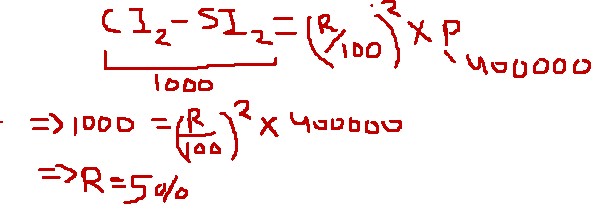 CI₂-SI₂=(R/100)²×P
1000
400000
⇒1000=(R/100)²×400000
⇒R=5%